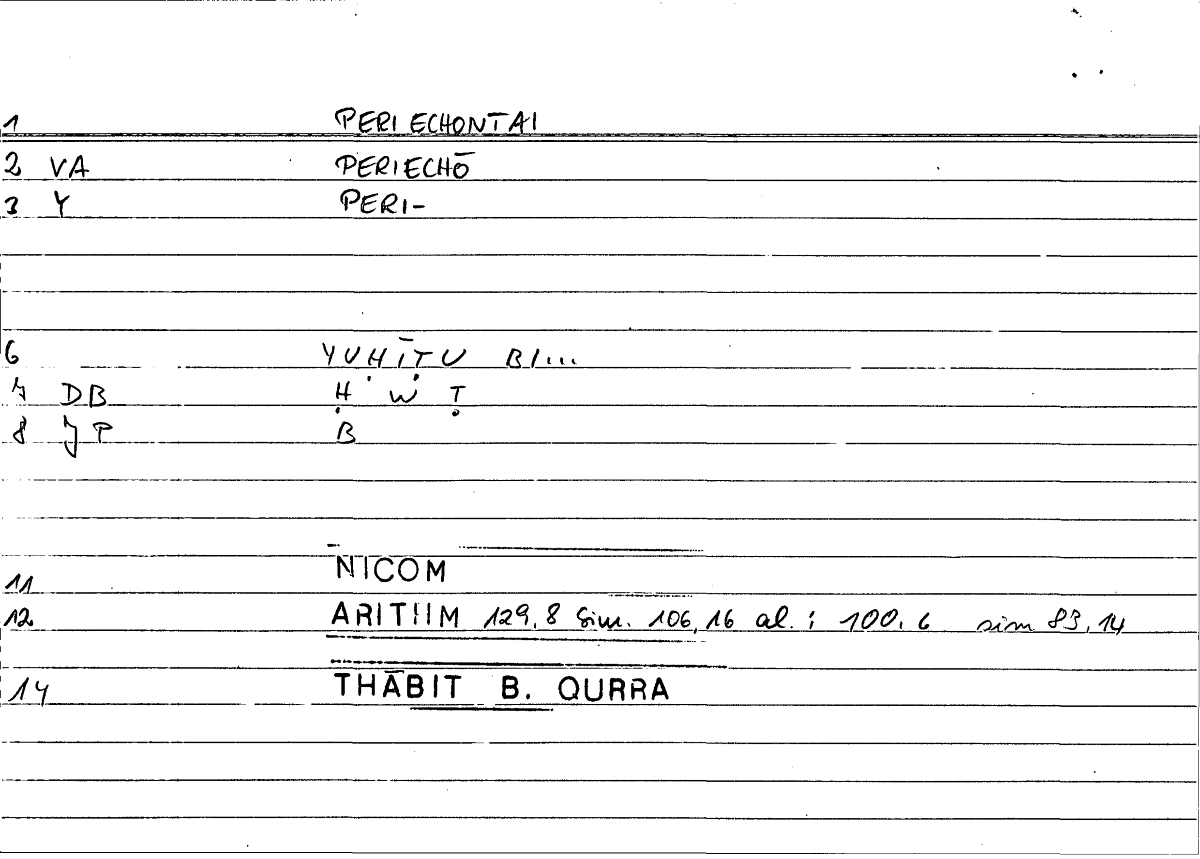 1 PERIECHONTAI
2 VA PERIECHŌ
3 Y PERI-
6 YUḤĪṬU BI...
7 DB Ḥ W Ṭ
8 JP B
11 NICOM
12 ARITHM 129,8 sim. 106,16 al. : 100,6 sim 83,14
14 THĀBIT B. QURRA